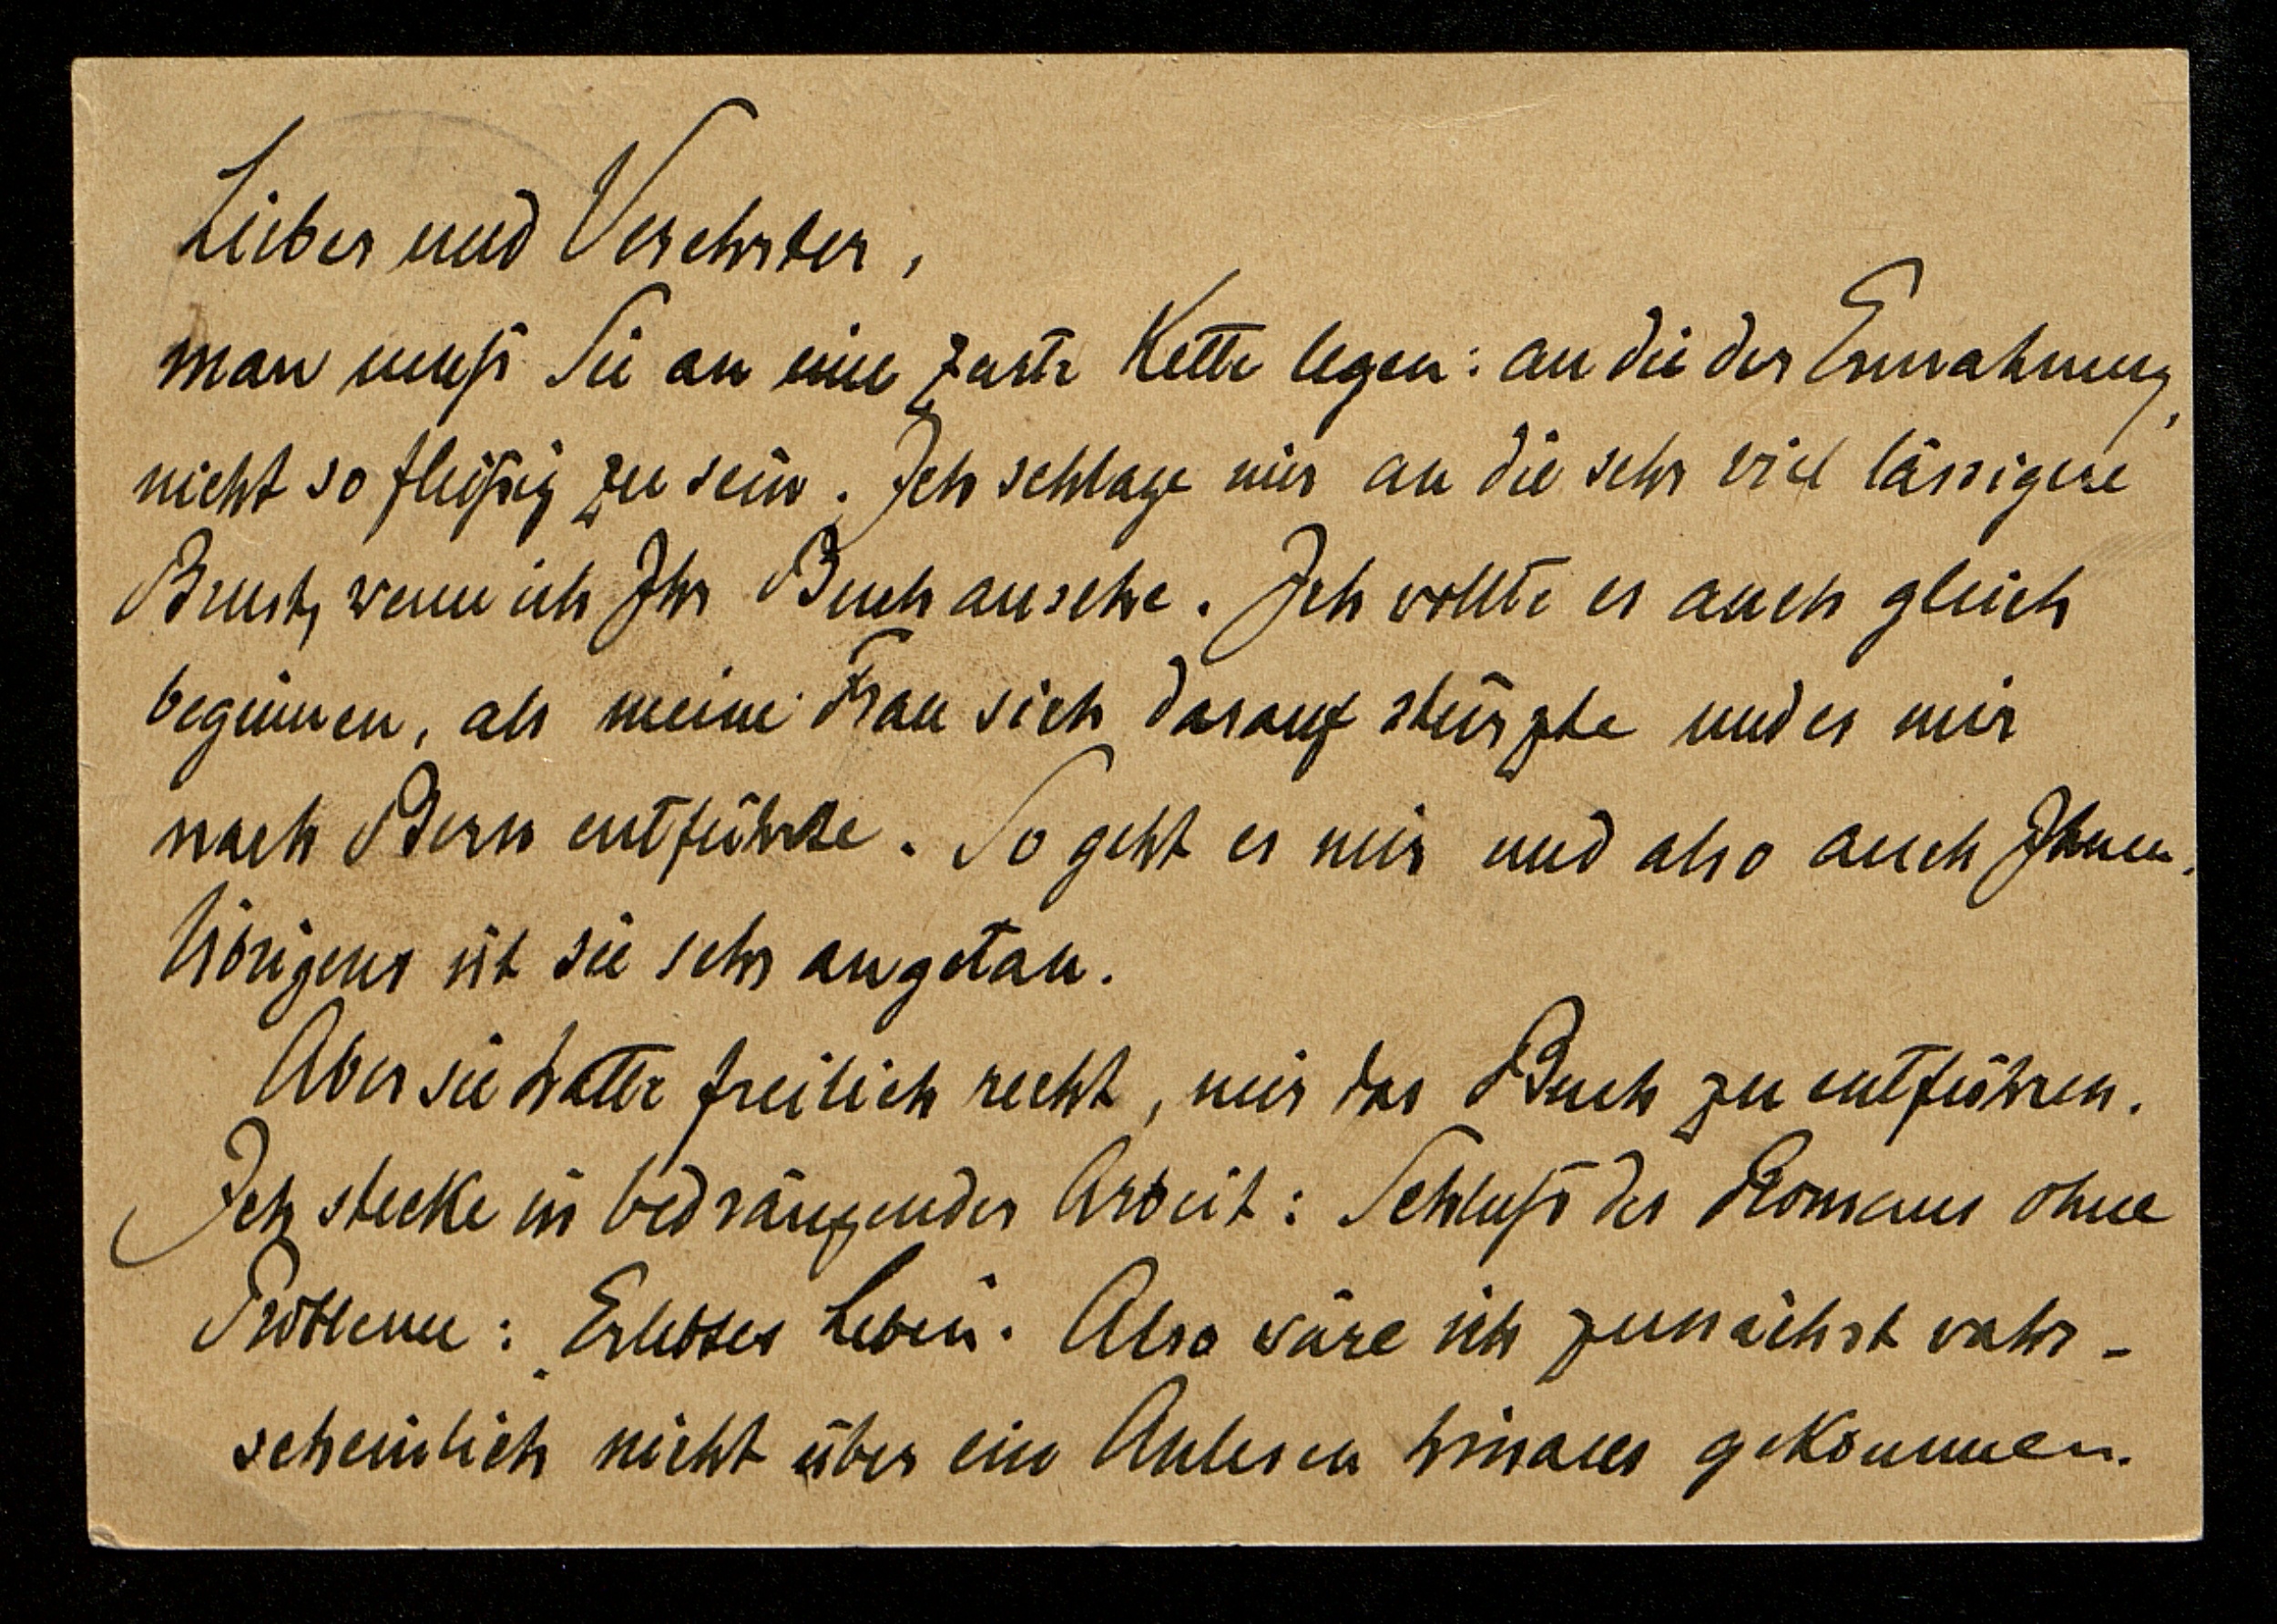 Lieber und Verehrter,
man muß Sie an eine zarte Kette legen: an die der Ermahnung,
nicht so fleißig zu sein. Ich schlage mir an die sehr viel lässigere
Brust, wenn ich Ihr Buch ansehe. Ich wollte es auch gleich
beginnen, als meine Frau sich darauf stürzte und es mir
nach Bern entführte. So geht es mir und also auch Ihnen.
Übrigens ist sie sehr angetan.
Aber sie hatte freilich recht, mir das Buch zu entführen.
Ich stecke in bedrängender Arbeit: Schluß des Romans ohne
Probleme: Erlebtes Leben. Also wäre ich zunächst wahr-
scheinlich nicht über ein Anlesen hinaus gekommen.